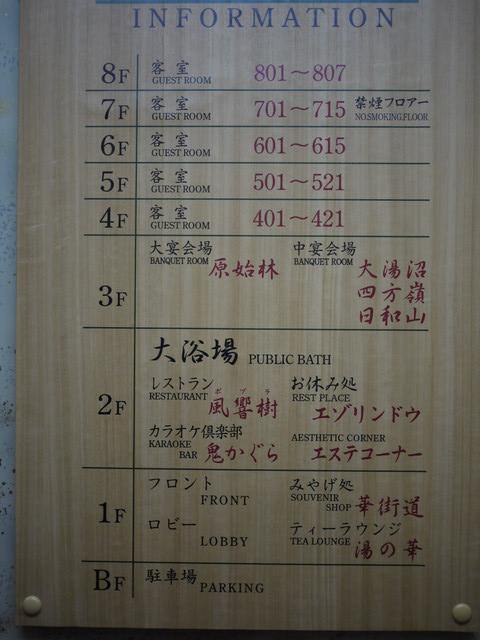 INFORMATION
8F 客室 GUEST ROOM 801～807
7F 客室 GUEST ROOM 701～715 禁煙フロアー NO.SMOKING.FLOOR
6F 客室 GUEST ROOM 601～615
5F 客室 GUEST ROOM 501～521
4F 客室 GUEST ROOM 401～421
3F
大宴会場 BANQUET ROOM 原始林
中宴会場 BANQUET ROOM 大湯沼
四方嶺
日和山
2F
大浴場 PUBLIC BATH
レストラン RESTAURANT 風響樹 ポプラ
お休み処 REST PLACE エゾリンドウ
カラオケ倶楽部 KARAOKE BAR 鬼かぐら
AESTHETIC CORNER エステコーナー
1F
フロント FRONT
みやげ処 SOUVENIR SHOP 華街道
ロビー LOBBY
ティーラウンジ TEA LOUNGE 湯の華
BF 駐車場 PARKING